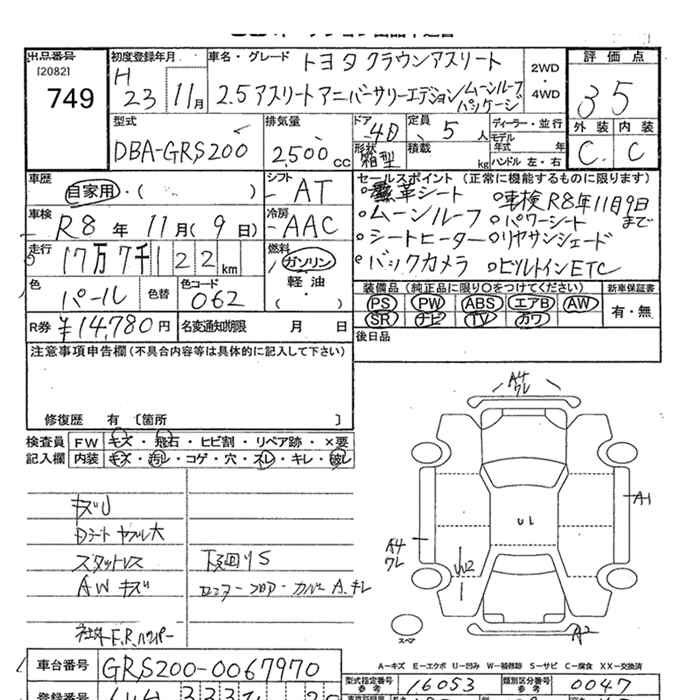 出品番号 初度登録年月 車名・グレード トヨタ クラウンアスリート 2WD・4WD 評価点
[2082] 749 H 23 11月 2.5 アスリート アニバーサリーエデション ムーンルーフパッケージ 3 5
型式 排気量 ドア 4D 定員 5 人 ディーラー・並行 外装 内装
DBA-GRS200 2,500 cc 形状 箱型 積載 kg モデル年式 年 ハンドル 左・右 C C
車歴 シフト セールスポイント (正常に機能するものに限ります)
自家用・( ) AT 革シート 車検 R8年11月9日まで
車検 冷房 ムーンルーフ パワーシート
R8 年 11 月 ( 9 日) AAC シートヒーター リヤサンシェード
走行 燃料 バックカメラ ビルトインETC
17万 7千122 km ガソリン・軽油・( )
色 パール 色替 色コード 062
装備品 (純正品に限り〇をつけてください) 新車保証書
PS PW ABS エアB AW 有・無
SR ナビ TV カワ
R券 ¥14,780 円 名変通知期限 月 日 後日品
注意事項申告欄 (不具合内容等は具体的に記入して下さい)
修復歴 有 [箇所 ]
検査員 FW キズ・飛石・ヒビ割・リペア跡・×要
記入欄 内装 キズ・汚レ・コゲ・穴・スレ・キレ・破レ
A4 ワレ
A1
U1
A4 ワレ
W2
A2
スペア
キズU
Dシート ヤブレ大
スタットレス 下廻りS
AW キズ
社外 F.R.
A-キズ E-エクボ U-凹み W-補修跡 S-サビ C-腐食 XX-交換済
車台番号 GRS200-0067970
型式指定番号 参考 16053 類別区分番号 参考 0047